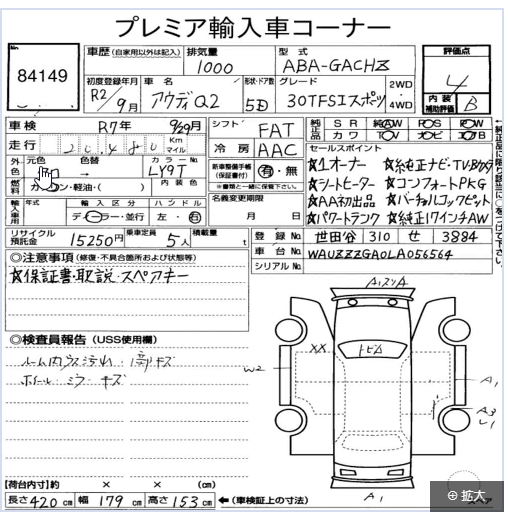 プレミア輸入車コーナー
No
84149
車歴 (自家用以外は記入)
排気量
1000
型式
ABA-GACHZ
評価点
4
内装補助評価 B
初度登録年月
R2/9月
車名
アウディQ2
形状・ドア数
5D
グレード
30TFSIスポーツ
2WD
4WD
車検 R7年 9/29月
走行 20,480 Km マイル
シフト FAT
冷房 AAC
純正品 SR AW PS PW
カワ TV ナビ エアB
外色 元色 色替 →
カラーNo LY9T
内装色
新車整備手帳(保証書付) 有・無
※書類と一緒に保管下さい。
燃料 ガソリン・軽油・( )
セールスポイント
☆1オーナー ☆純正ナビ・TV
☆シートヒーター ☆コンフォートPKG
☆AA初出品 ☆バーチャルコックピット
☆パワートランク ☆純正17インチAW
輸入車用 年式 輸入区分 ディーラー・並行 ハンドル 左・右
名義変更期限 月 日
リサイクル預託金 15250円
乗車定員 5人
積載量 t
登録No 世田谷 310 せ 3884
車台No WAUZZZGA0LA056564
シリアルNo
◎注意事項 (修復・不具合箇所および状態等)
☆保証書・取説・スペアキー
◎検査員報告 (USS使用欄)
ルーム内 汚れ・ キズ
ホイール ミラー キズ
XX
トビA
W2
A1
A3
U1
A1
【荷台内寸】約 × × (cm)
長さ 420 cm 幅 179 cm 高さ 153 cm ←(車検証上の寸法)
スペア
拡大